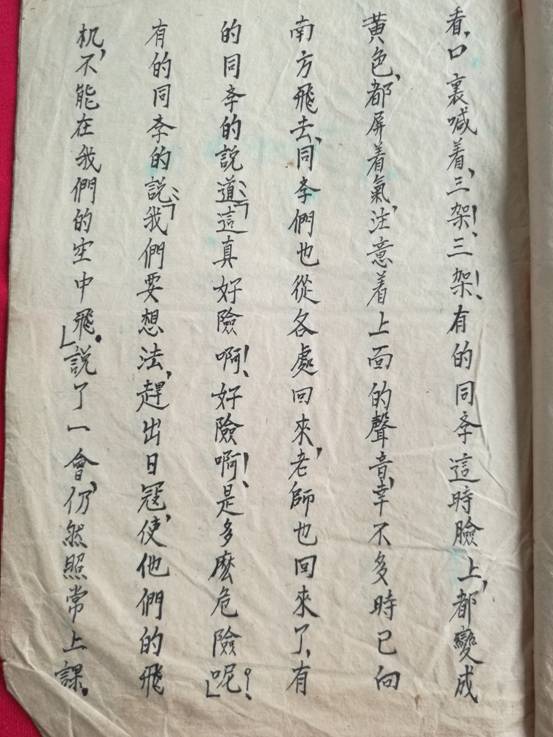 看，口裏喊着，三架！三架！有的同学這時臉上，都變成
黄色，都屏着氣，注意着上面的聲音，幸不多時已向
南方飛去，同学們也從各處回來，老師也回來了，有
的同学的說道：「這真好險啊！好險啊！是多麽危險呢！」
有的同学的說：「我們要想法，趕出日冦，使他們的飛
机，不能在我們的空中飛。」說了一會，仍然照常上課。